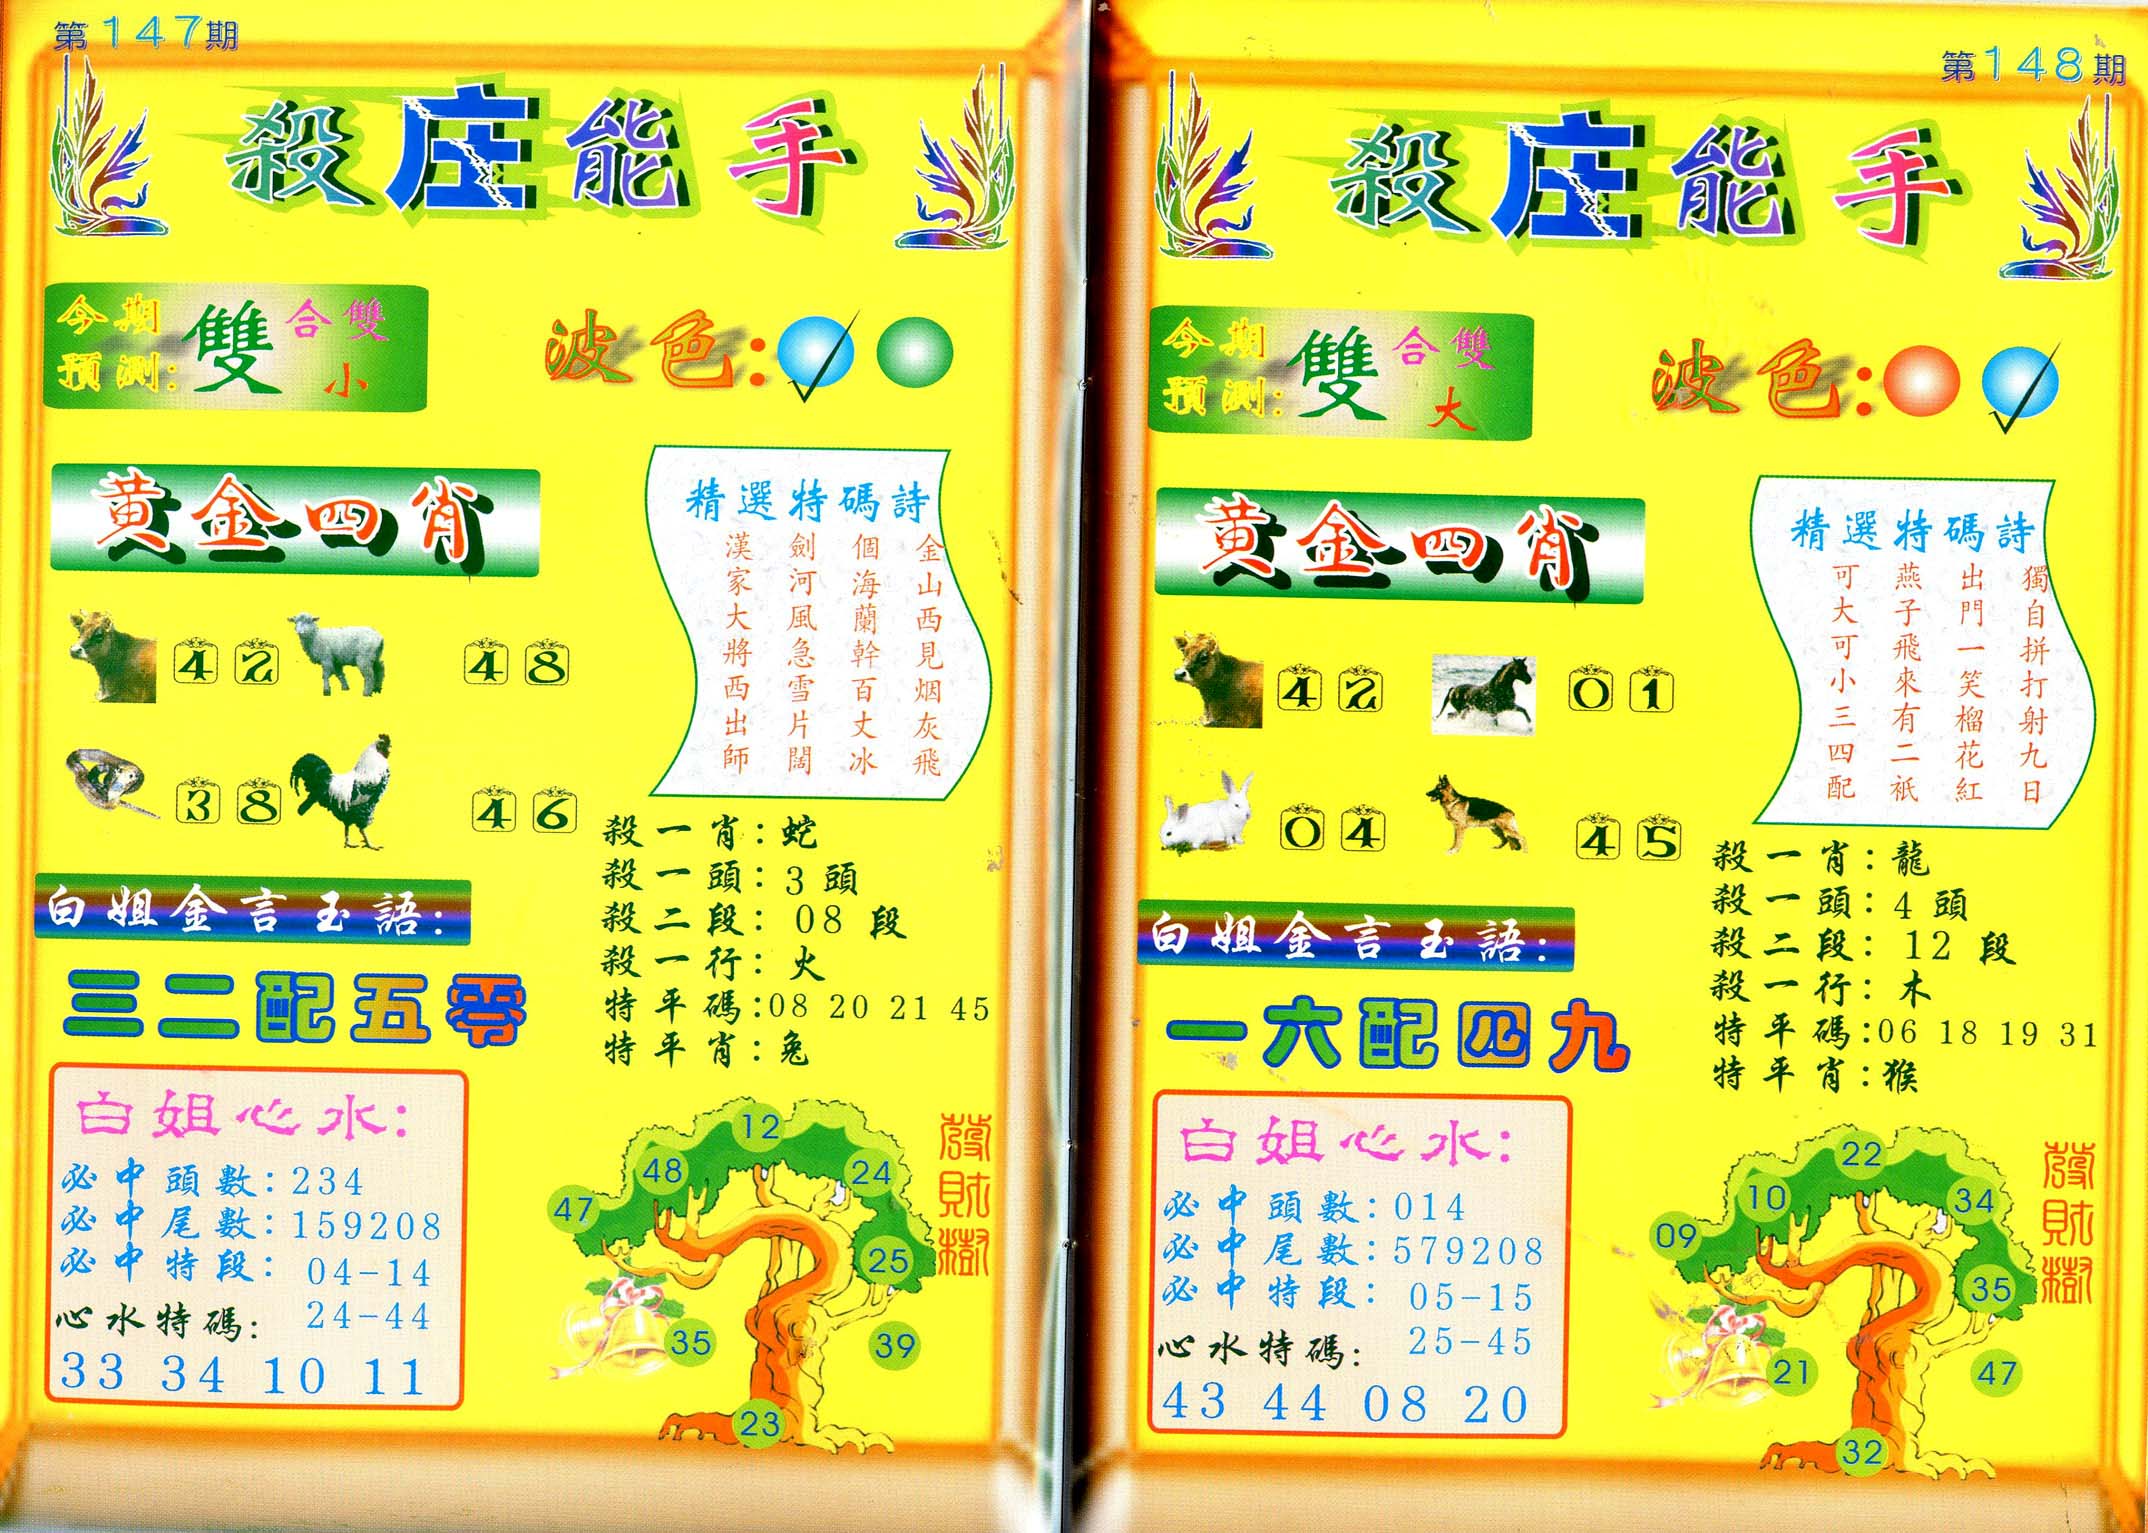 第147期
殺庄能手
今期
預測:
雙
合雙
小
波色:
黃金四肖
42
48
38
46
精選特碼詩
金山西見烟灰飛
個海蘭幹百丈冰
劍河風急雪片闊
漢家大將西出師
殺一肖:蛇
殺一頭:3頭
殺二段:08段
殺一行:火
特平碼:08 20 21 45
特平肖:兔
白姐金言玉語:
三二配五零
白姐心水:
必中頭數:234
必中尾數:159208
必中特段:04-14
24-44
心水特碼:
33 34 10 11
發財樹
12
48
24
47
25
35
39
23
第148期
殺庄能手
今期
預測:
雙
合雙
大
波色:
黃金四肖
42
01
04
45
精選特碼詩
獨自拼打射九日
出門一笑榴花紅
燕子飛來有二祇
可大可小三四配
殺一肖:龍
殺一頭:4頭
殺二段:12段
殺一行:木
特平碼:06 18 19 31
特平肖:猴
白姐金言玉語:
一六配四九
白姐心水:
必中頭數:014
必中尾數:579208
必中特段:05-15
25-45
心水特碼:
43 44 08 20
發財樹
22
10
34
09
35
21
47
32